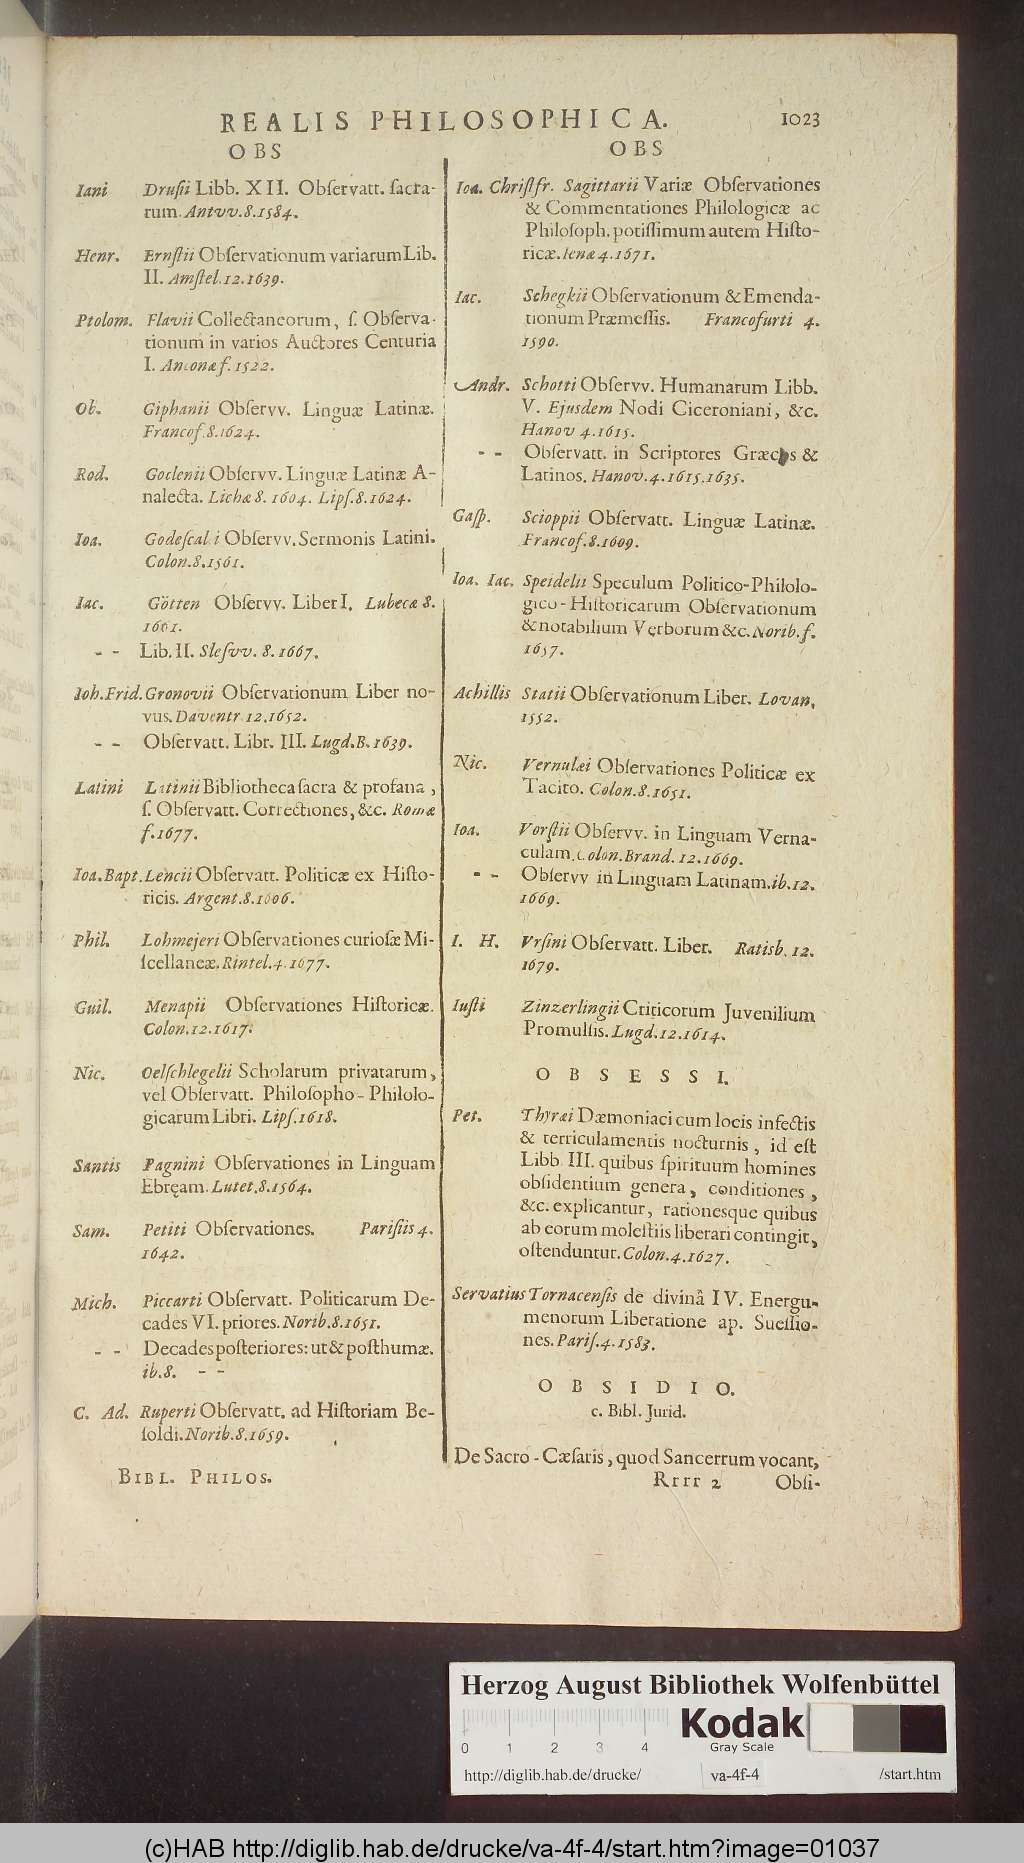 REALIS PHILOSOPHICA. 1023
OBS
Iani Druſii Libb. XII. Obſervatt. ſacra-
rum. Antvv. 8. 1584.
Henr. Ernſtii Obſervationum variarum Lib.
II. Amſtel. 12. 1639.
Ptolom. Flavii Collectaneorum, ſ. Obſerva-
tionum in varios Auctores Centuria
I. Anconæ f. 1522.
Ob. Giphanii Obſervv. Linguæ Latinæ.
Francof. 8. 1624.
Rod. Goclenii Obſervv. Linguæ Latinæ A-
nalecta. Lichæ 8. 1604. Lipſ. 8. 1624.
Ioa. Godeſcalci Obſervv. Sermonis Latini.
Colon. 8. 1561.
Iac. Götten Obſervv. Liber I. Lubecæ 8.
1661.
- - Lib. II. Sleſvv. 8. 1667.
Ioh. Frid. Gronovii Obſervationum Liber no-
vus. Daventr. 12. 1652.
- - Obſervatt. Libr. III. Lugd. B. 1639.
Latini Latinii Bibliotheca ſacra & profana,
ſ. Obſervatt. Correctiones, &c. Romæ
f. 1677.
Ioa. Bapt. Lencii Obſervatt. Politicæ ex Hiſto-
ricis. Argent. 8. 1606.
Phil. Lohmejeri Obſervationes curioſæ Mi-
ſcellaneæ. Rintel. 4. 1677.
Guil. Menapii Obſervationes Hiſtoricæ.
Colon. 12. 1617.
Nic. Oelſchlegelii Scholarum privatarum,
vel Obſervatt. Philoſopho-Philolo-
gicarum Libri. Lipſ. 1618.
Santis Pagnini Obſervationes in Linguam
Ebręam. Lutet. 8. 1564.
Sam. Petiti Obſervationes. Pariſiis 4.
1642.
Mich. Piccarti Obſervatt. Politicarum De-
cades VI. priores. Norib. 8. 1651.
- - Decades poſteriores: ut & poſthumæ.
ib. 8. - -
C. Ad. Ruperti Obſervatt. ad Hiſtoriam Be-
ſoldi. Norib. 8. 1659.
BIBL. PHILOS.
OBS
Ioa. Chriſtfr. Sagittarii Variæ Obſervationes
& Commentationes Philologicæ ac
Philoſoph. potiſſimum autem Hiſto-
ricæ. Ienæ 4. 1671.
Iac. Schegkii Obſervationum & Emenda-
tionum Præmeſſis. Francofurti 4.
1590.
Andr. Schotti Obſervv. Humanarum Libb.
V. Ejusdem Nodi Ciceroniani, &c.
Hanov 4. 1615.
- - Obſervatt. in Scriptores Græcos &
Latinos. Hanov. 4. 1615. 1635.
Gaſp. Scioppii Obſervatt. Linguæ Latinæ.
Francof. 8. 1609.
Ioa. Iac. Speidelii Speculum Politico-Philolo-
gico-Hiſtoricarum Obſervationum
& notabilium Verborum &c. Norib. f.
1657.
Achillis Statii Obſervationum Liber. Lovan,
1552.
Nic. Vernulæi Obſervationes Politicæ ex
Tacito. Colon. 8. 1651.
Ioa. Vorſtii Obſervv. in Linguam Verna-
culam. Colon. Brand. 12. 1669.
- - Obſervv in Linguam Latinam. ib. 12.
1669.
I. H. Vrſini Obſervatt. Liber. Ratisb. 12.
1679.
Iuſti Zinzerlingii Criticorum Juvenilium
Promulſis. Lugd. 12. 1614.
OBSESSI.
Pet. Thyræi Dæmoniaci cum locis infectis
& terriculamentis nocturnis, id eſt
Libb. III. quibus ſpirituum homines
obſidentium genera, conditiones,
&c. explicantur, rationesque quibus
ab eorum moleſtiis liberari contingit,
oſtenduntur. Colon. 4. 1627.
Servatius Tornacenſis de divinâ IV. Energu-
menorum Liberatione ap. Sueſſio-
nes. Pariſ. 4. 1583.
OBSIDIO.
c. Bibl. Jurid.
De Sacro-Cæſaris, quod Sancerrum vocant,
Rrrr 2 Obſi-
Herzog August Bibliothek Wolfenbüttel
Kodak
Gray Scale
0 1 2 3 4
http://diglib.hab.de/drucke/ va-4f-4 /start.htm
(c)HAB http://diglib.hab.de/drucke/va-4f-4/start.htm?image=01037